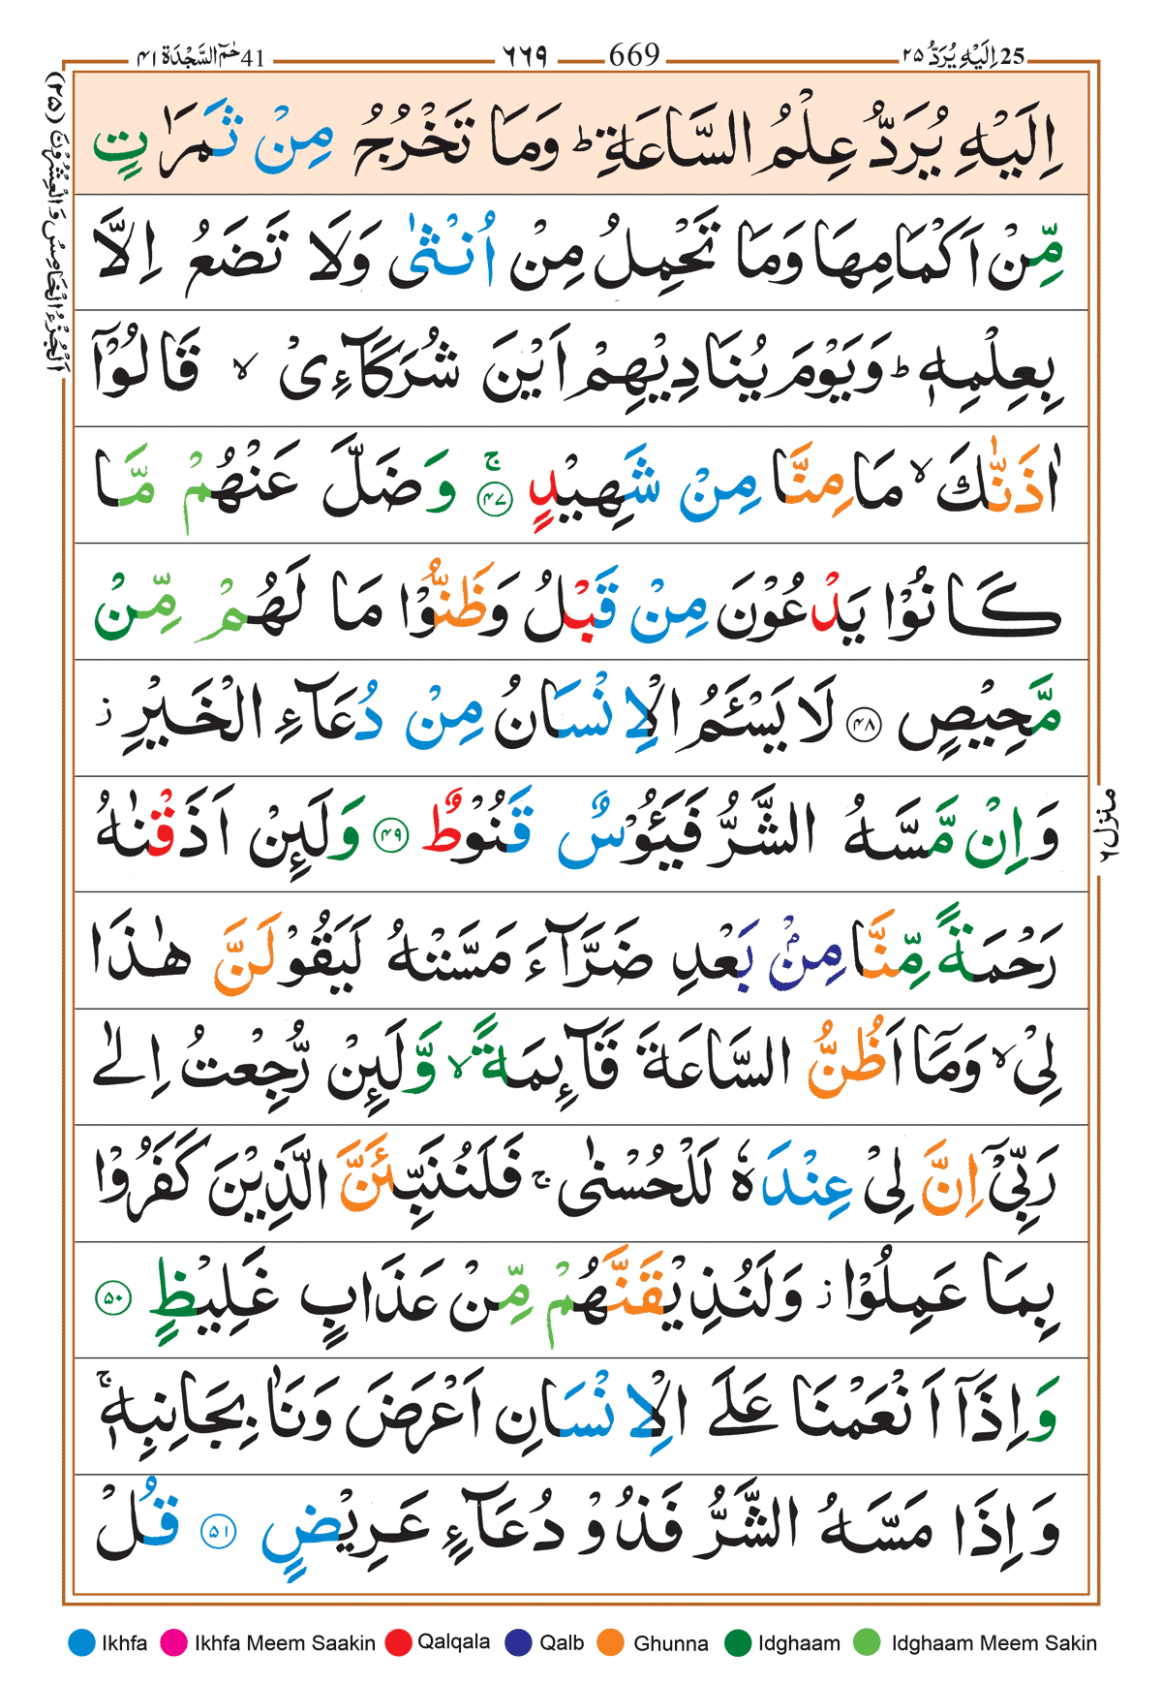 25 اِلَيْهِ يُرَدُّ ۲۵ 669 ٦٦٩ 41 حٰمٓ السَّجْدَة ۴۱
اِلَيْهِ يُرَدُّ عِلْمُ السَّاعَةِ ؕ وَمَا تَخْرُجُ مِنْ ثَمَرٰتٍ
مِّنْ اَكْمَامِهَا وَمَا تَحْمِلُ مِنْ اُنْثٰى وَلَا تَضَعُ اِلَّا
بِعِلْمِهٖ ؕ وَيَوْمَ يُنَادِيْهِمْ اَيْنَ شُرَكَآءِىْ ۙ قَالُوْۤا
اٰذَنّٰكَ ۙ مَا مِنَّا مِنْ شَهِيْدٍ ۚ ﴿۴۷﴾ وَضَلَّ عَنْهُمْ مَّا
كَانُوْا يَدْعُوْنَ مِنْ قَبْلُ وَظَنُّوْا مَا لَهُمْ مِّنْ
مَّحِيْصٍ ﴿۴۸﴾ لَا يَسْئَمُ الْاِنْسَانُ مِنْ دُعَآءِ الْخَيْرِ ز
وَاِنْ مَّسَّهُ الشَّرُّ فَيَئُوْسٌ قَنُوْطٌ ﴿۴۹﴾ وَلَئِنْ اَذَقْنٰهُ
رَحْمَةً مِّنَّا مِنْۢ بَعْدِ ضَرَّآءَ مَسَّتْهُ لَيَقُوْلَنَّ هٰذَا
لِىْ ۙ وَمَاۤ اَظُنُّ السَّاعَةَ قَآئِمَةً ۙ وَّلَئِنْ رُّجِعْتُ اِلٰى
رَبِّىْۤ اِنَّ لِىْ عِنْدَهٗ لَلْحُسْنٰى ۚ فَلَنُنَبِّئَنَّ الَّذِيْنَ كَفَرُوْا
بِمَا عَمِلُوْا ز وَلَنُذِيْقَنَّهُمْ مِّنْ عَذَابٍ غَلِيْظٍ ﴿۵۰﴾
وَاِذَاۤ اَنْعَمْنَا عَلَى الْاِنْسَانِ اَعْرَضَ وَنَاٰ بِجَانِبِهٖ ۚ
وَاِذَا مَسَّهُ الشَّرُّ فَذُوْ دُعَآءٍ عَرِيْضٍ ﴿۵۱﴾ قُلْ
اَلْجُزْءُ الْخَامِسُ وَالْعِشْرُوْنَ (۲۵)
منزل ٦
Ikhfa Ikhfa Meem Saakin Qalqala Qalb Ghunna Idghaam Idghaam Meem Sakin